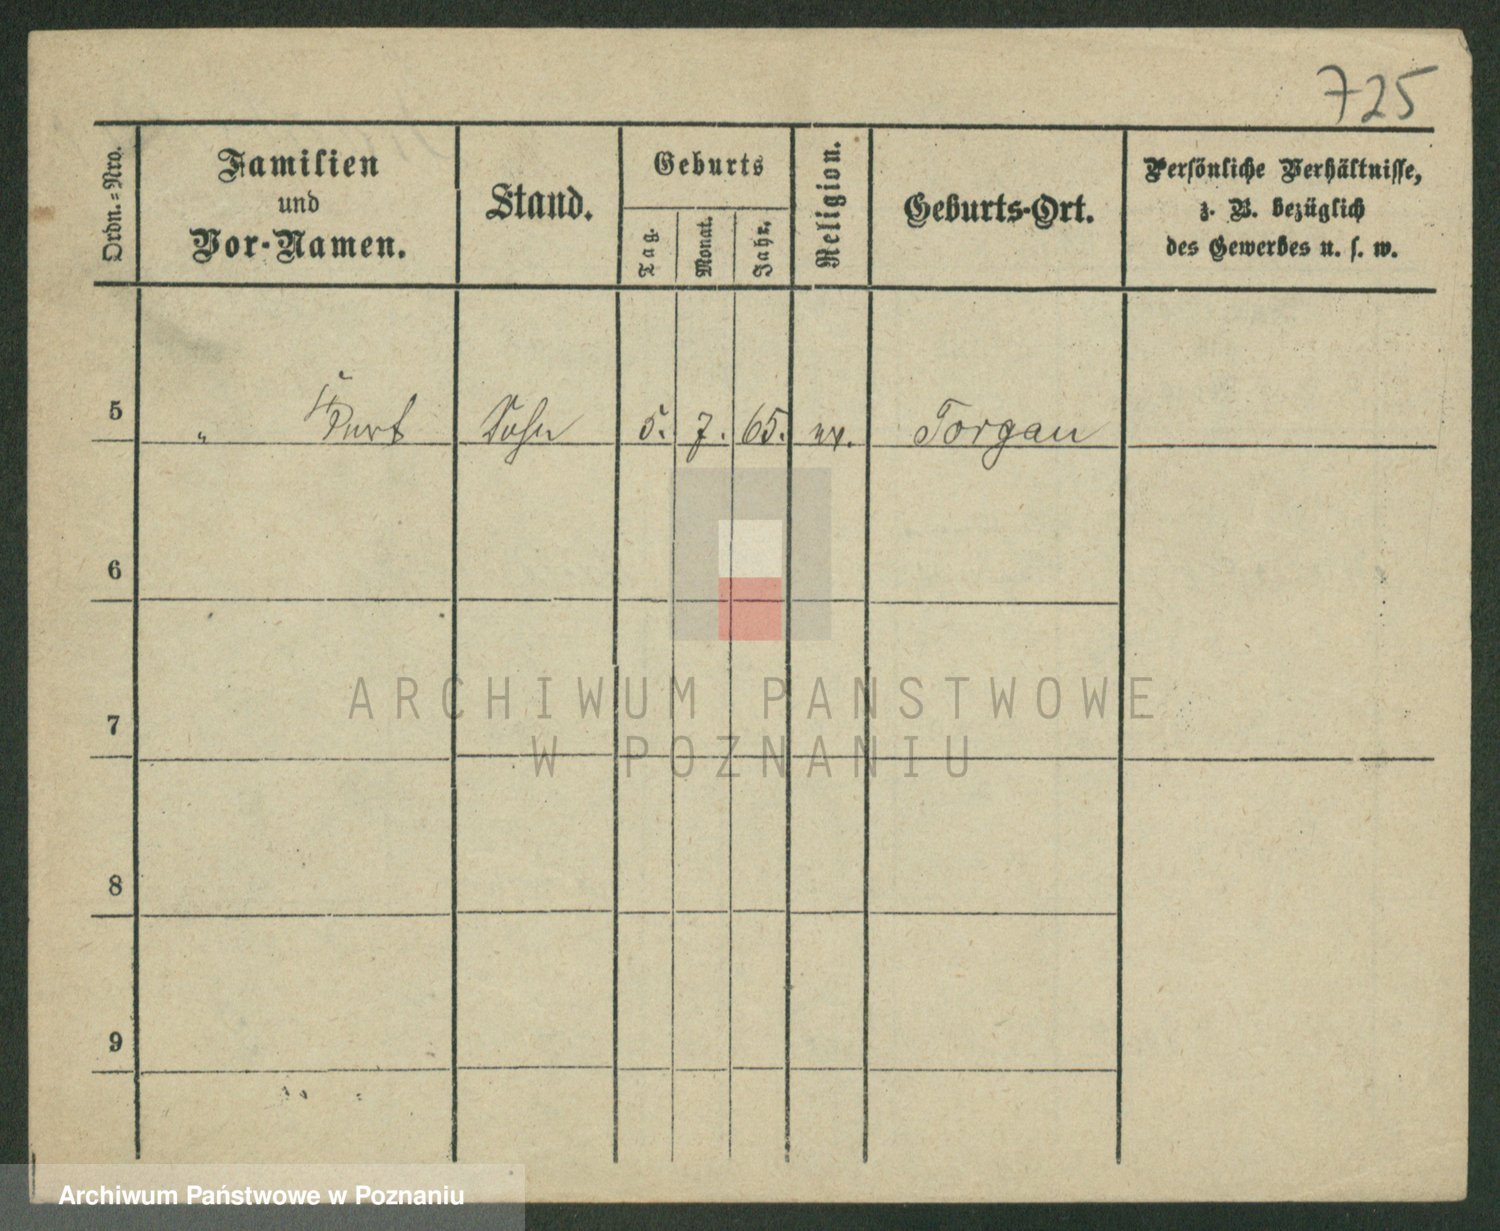 725
Ordn.=Nro.
Familien
und
Vor-Namen.
Stand.
Geburts
Tag.
Monat.
Jahr.
Religion.
Geburts-Ort.
Persönliche Verhältnisse,
z. B. bezüglich
des Gewerbes u. s. w.
5 " Kurt Sohn 5. 7. 65. ev. Torgau
6
7
8
9
ARCHIWUM PANSTWOWE
W POZNANIU
Archiwum Państwowe w Poznaniu